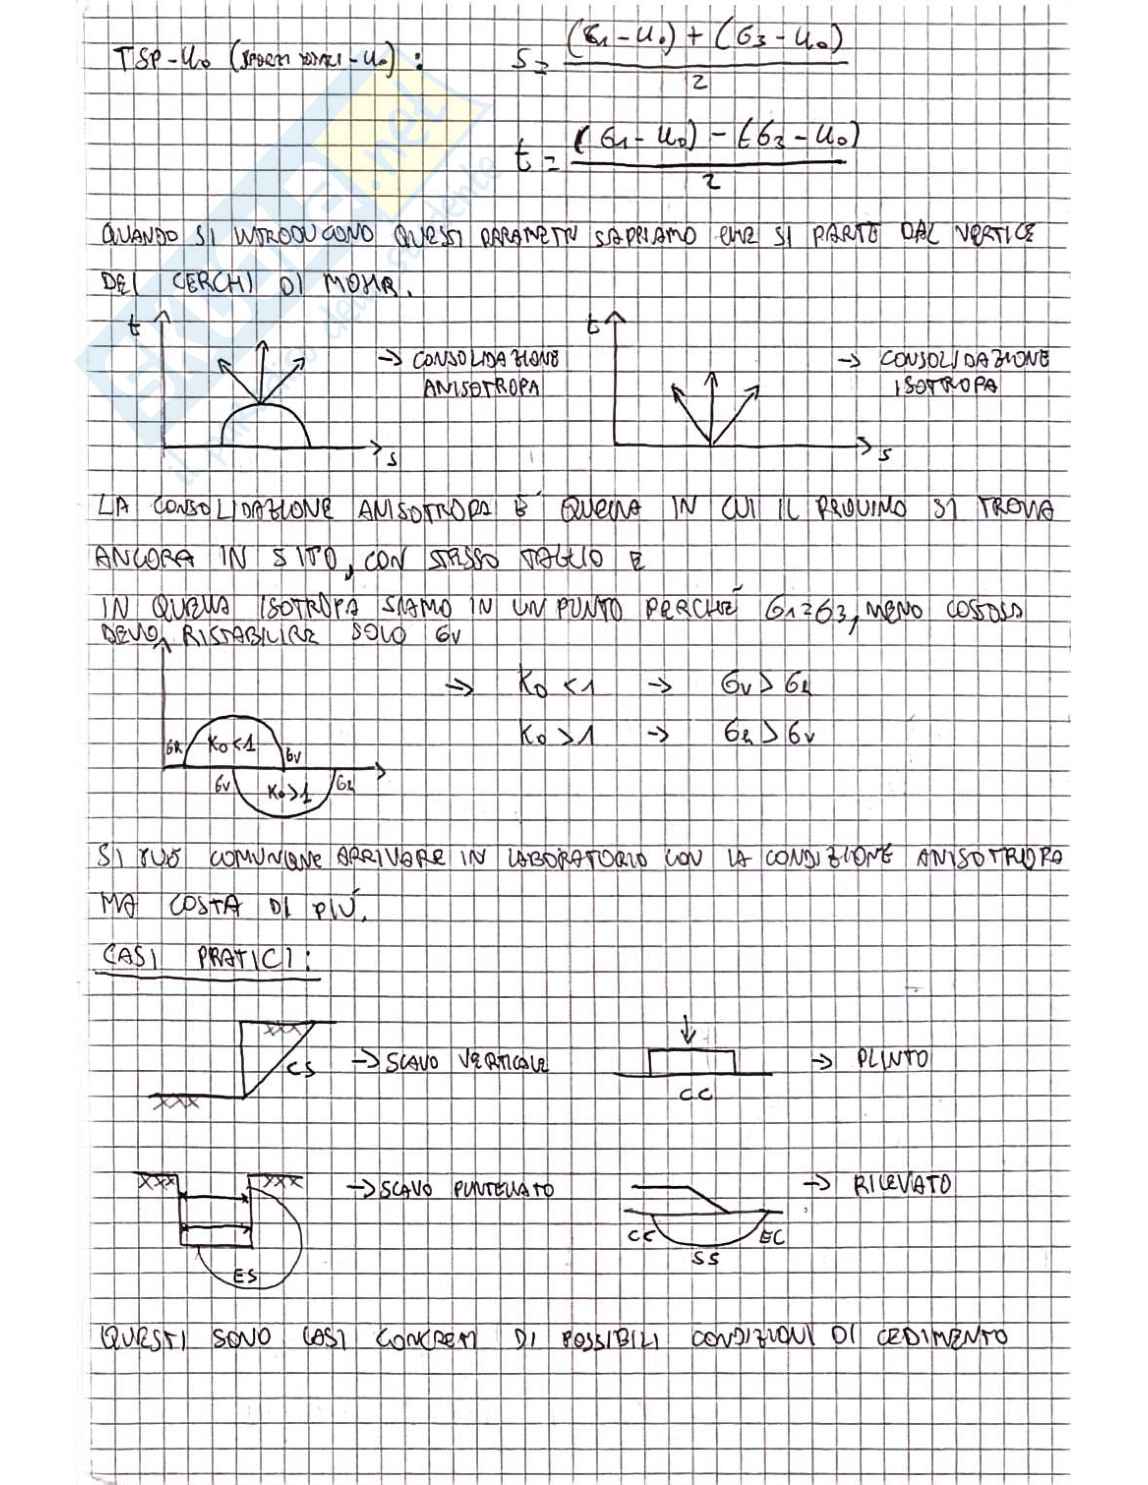 TSP-u₀ (SFORZI TOTALI - u₀) : s = (σ1 - u₀) + (σ3 - u₀) / 2
t = (σ1 - u₀) - (σ3 - u₀) / 2
QUANDO SI INTRODUCONO QUESTI PARAMETRI SAPPIAMO CHE SI PARTE DAL VERTICE
DEI CERCHI DI MOHR.
t t
→ CONSOLIDAZIONE → CONSOLIDAZIONE
ANISOTROPA ISOTROPA
s s
LA CONSOLIDAZIONE ANISOTROPA È QUELLA IN CUI IL PROVINO SI TROVA
ANCORA IN SITO, CON STESSO TAGLIO E
IN QUELLA ISOTROPA SIAMO IN UN PUNTO PERCHÉ σ1=σ3, MENO COSTOSA
DEVO RISTABILIRE SOLO σv
→ K₀ <1 → σv > σh
K₀ >1 → σh > σv
σh K₀<1 σv
σv K₀>1 σh
SI PUÒ COMUNQUE ARRIVARE IN LABORATORIO CON LA CONDIZIONE ANISOTROPA
MA COSTA DI PIÚ.
CASI PRATICI:
CS → SCAVO VERTICALE
CC → PLINTO
ES → SCAVO PUNTELLATO
CC SS EC → RILEVATO
QUESTI SONO CASI CONCRETI DI POSSIBILI CONDIZIONI DI CEDIMENTO
SKUOLA.net